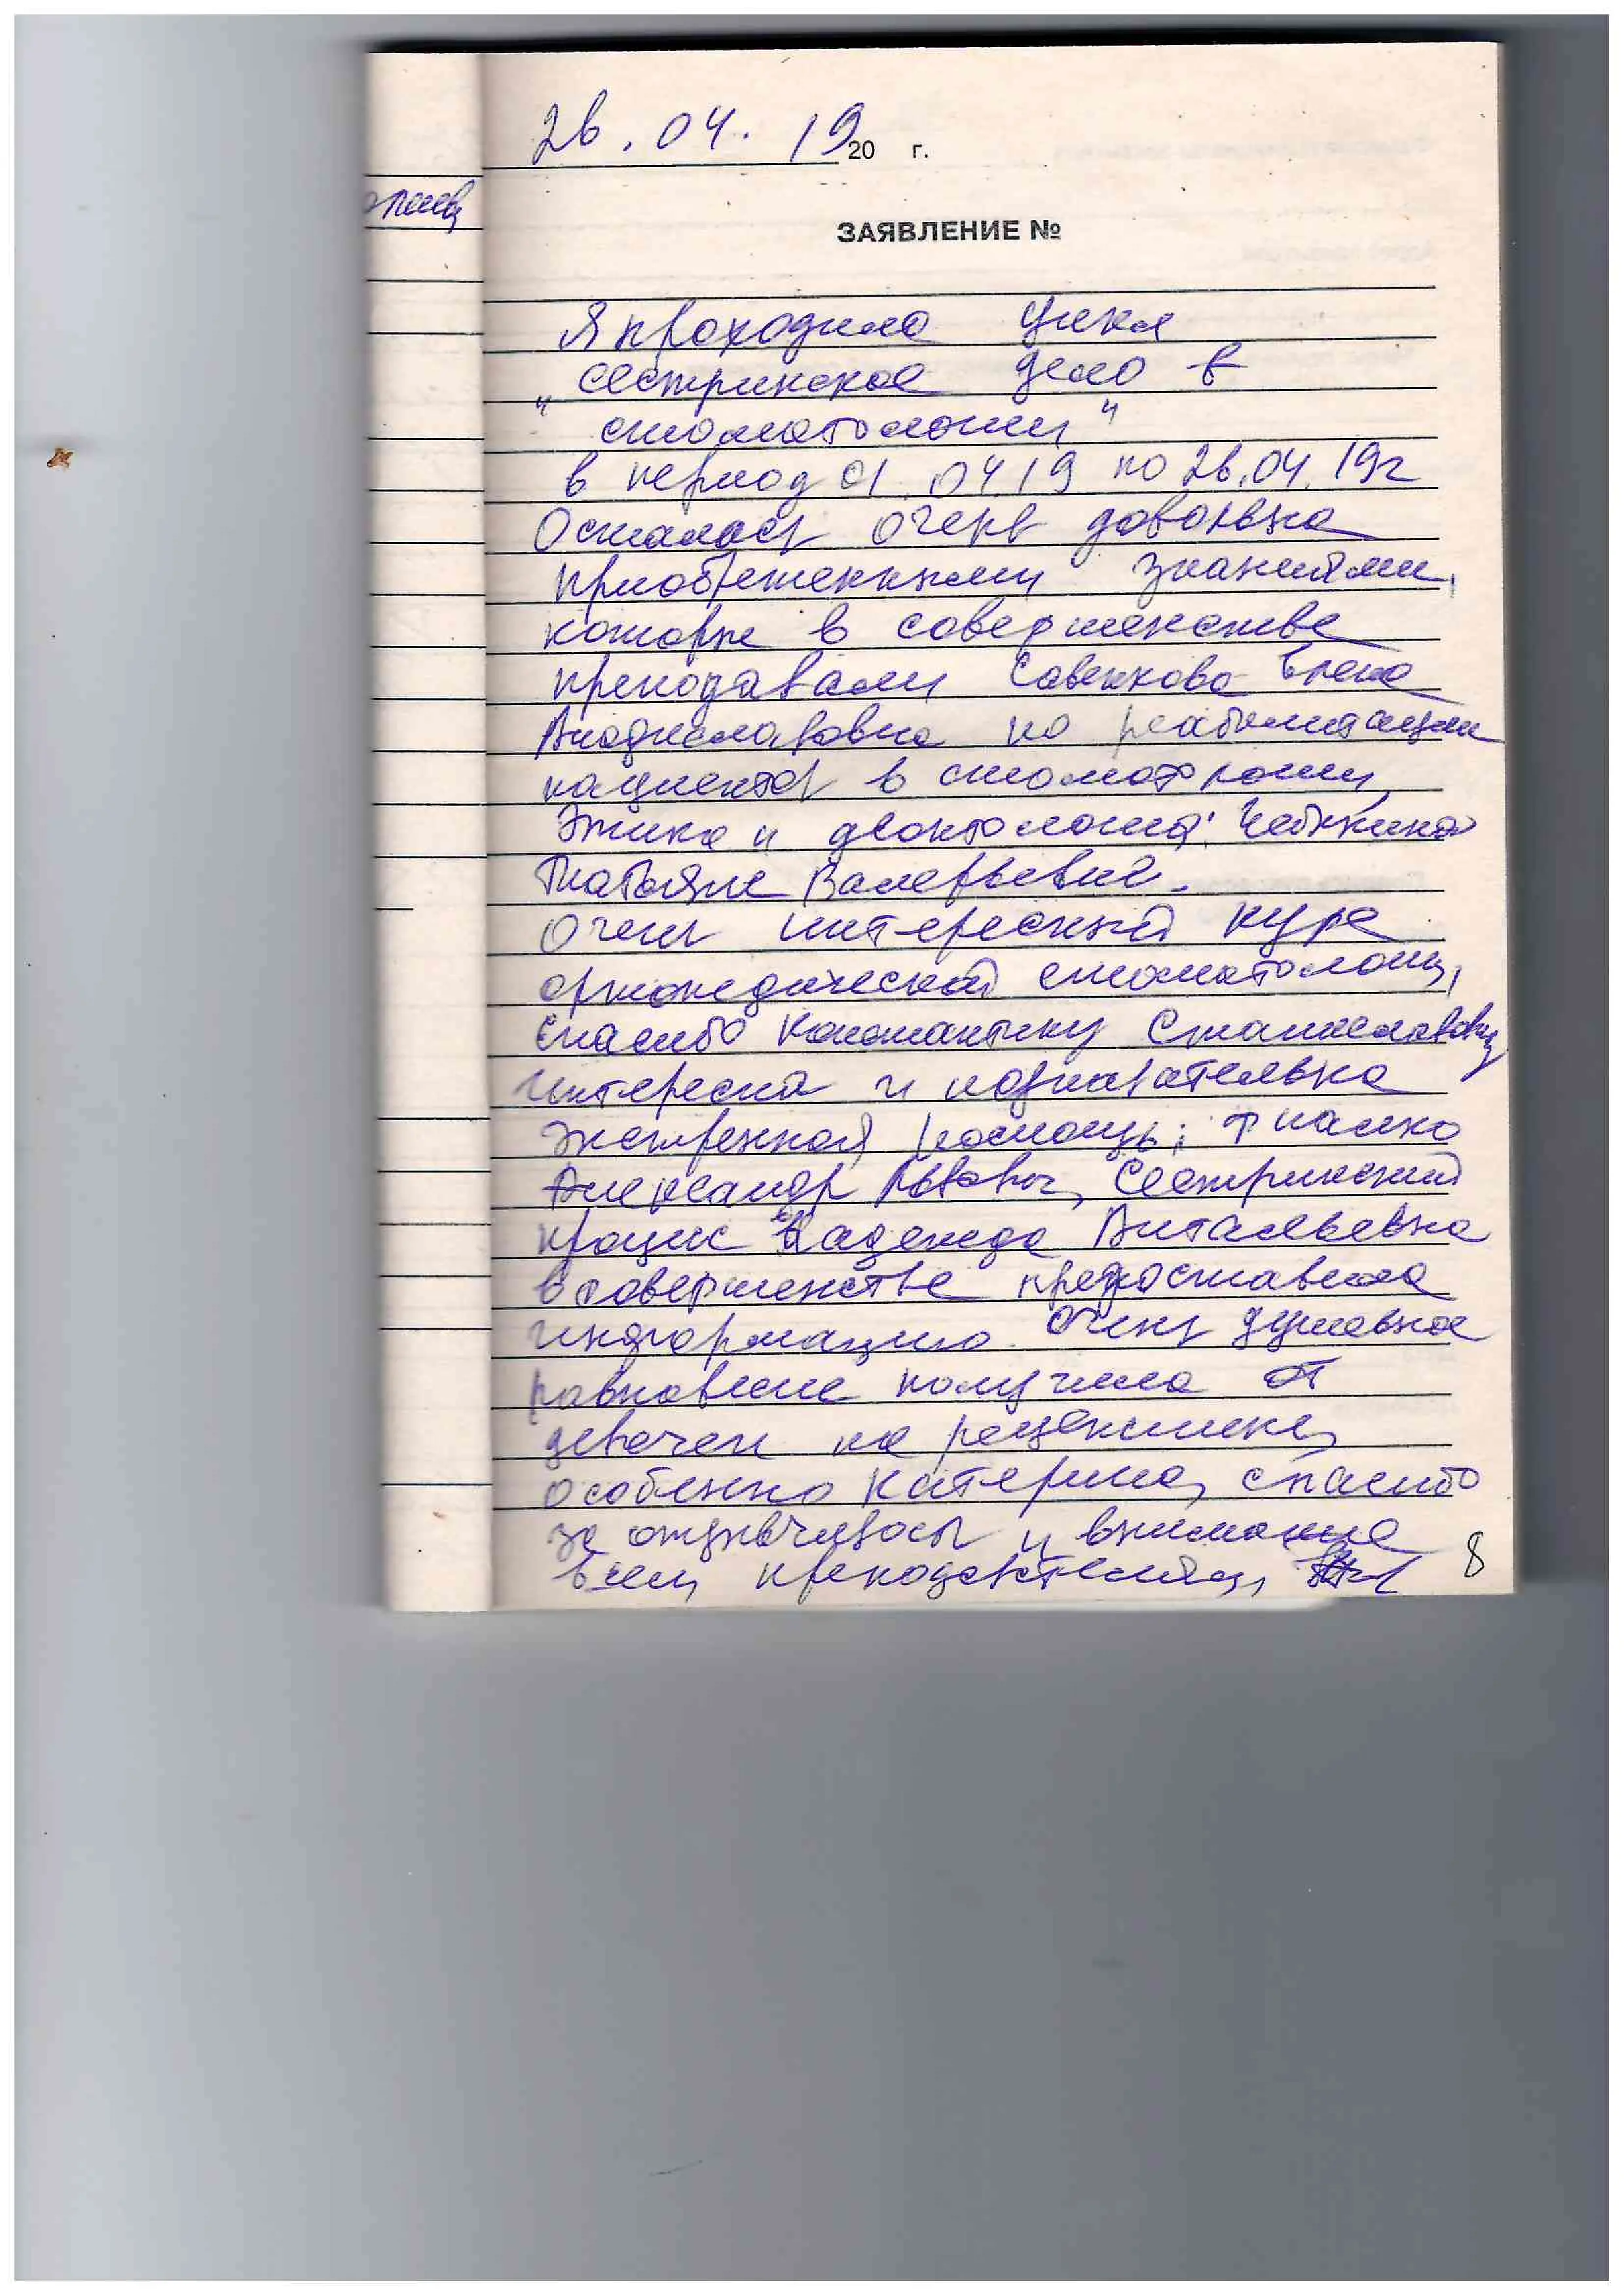 26.04.19 20 г.
ЗАЯВЛЕНИЕ №
Я проходила цикл
"Сестринское дело в
стоматологии"
в период 01.04.19 по 26.04.19г
Осталась очень довольна
приобретенными знаниями,
которые в совершенстве
преподавали Савенкова Елена
Владиславовна по реабилитации
пациентов в стоматологии,
Этика и деонтология:
Татьяне Валерьевне.
Очень интересный курс
ортопедической стоматологии,
спасибо Константину Станиславовичу
интересна и познавательна
экстренная помощь;
Александр Львович, Сестринский
процесс Надежда Витальевна
в совершенстве предоставила
информацию. Очень душевное
равновесие получила от
девочек на рецепшине,
особенно Катерина, спасибо
за отзывчивость и внимание
всем преподавателям,
8